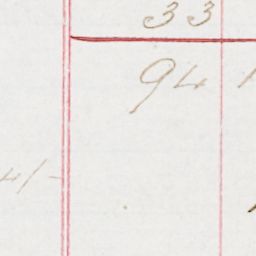 33
94
4/-